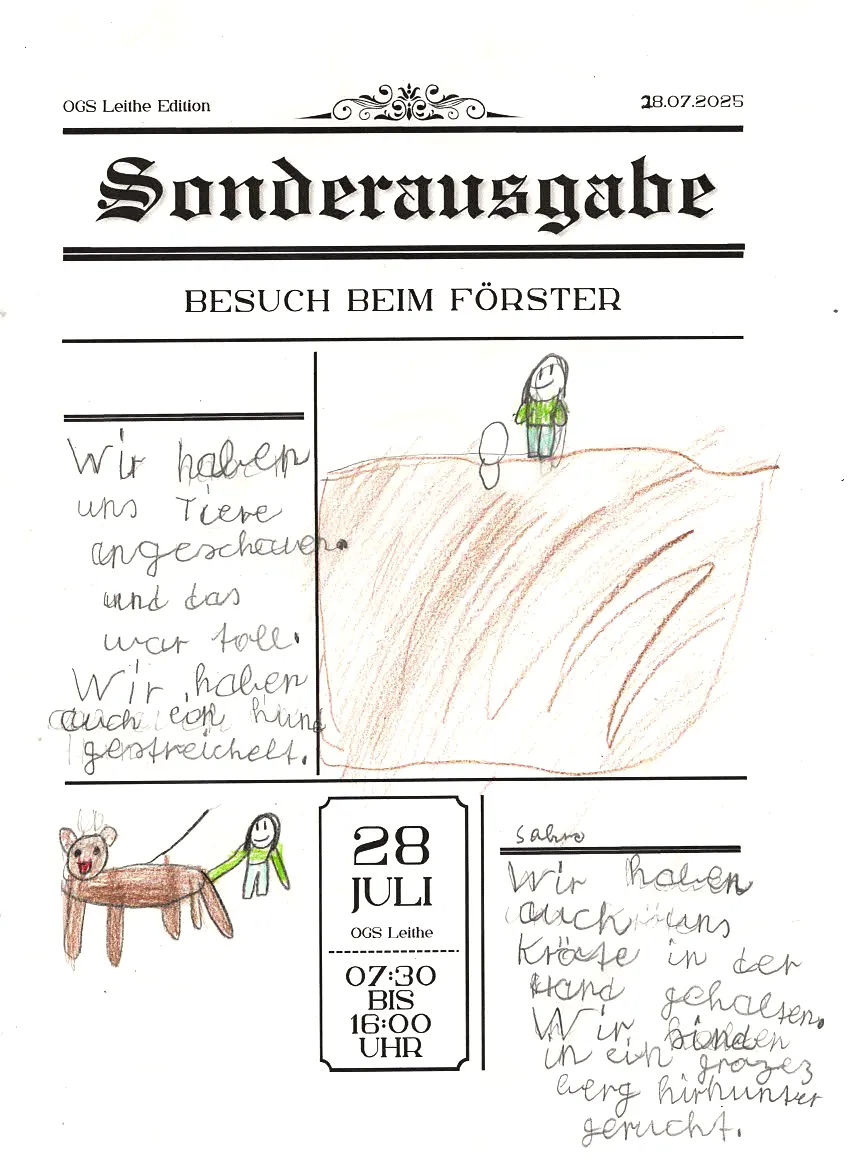 OGS Leithe Edition
28.07.2025
Sonderausgabe
BESUCH BEIM FÖRSTER
Wir haben
uns Tiere
angeschauen.
und das
war toll.
Wir haben
auch ein hund
gestreichelt.
28
JULI
OGS Leithe
07:30
BIS
16:00
UHR
Wir haben
auch uns
Kröte in der
Hand gehalten.
Wir sinden
in ein grozes
berg hirhunter
gerucht.